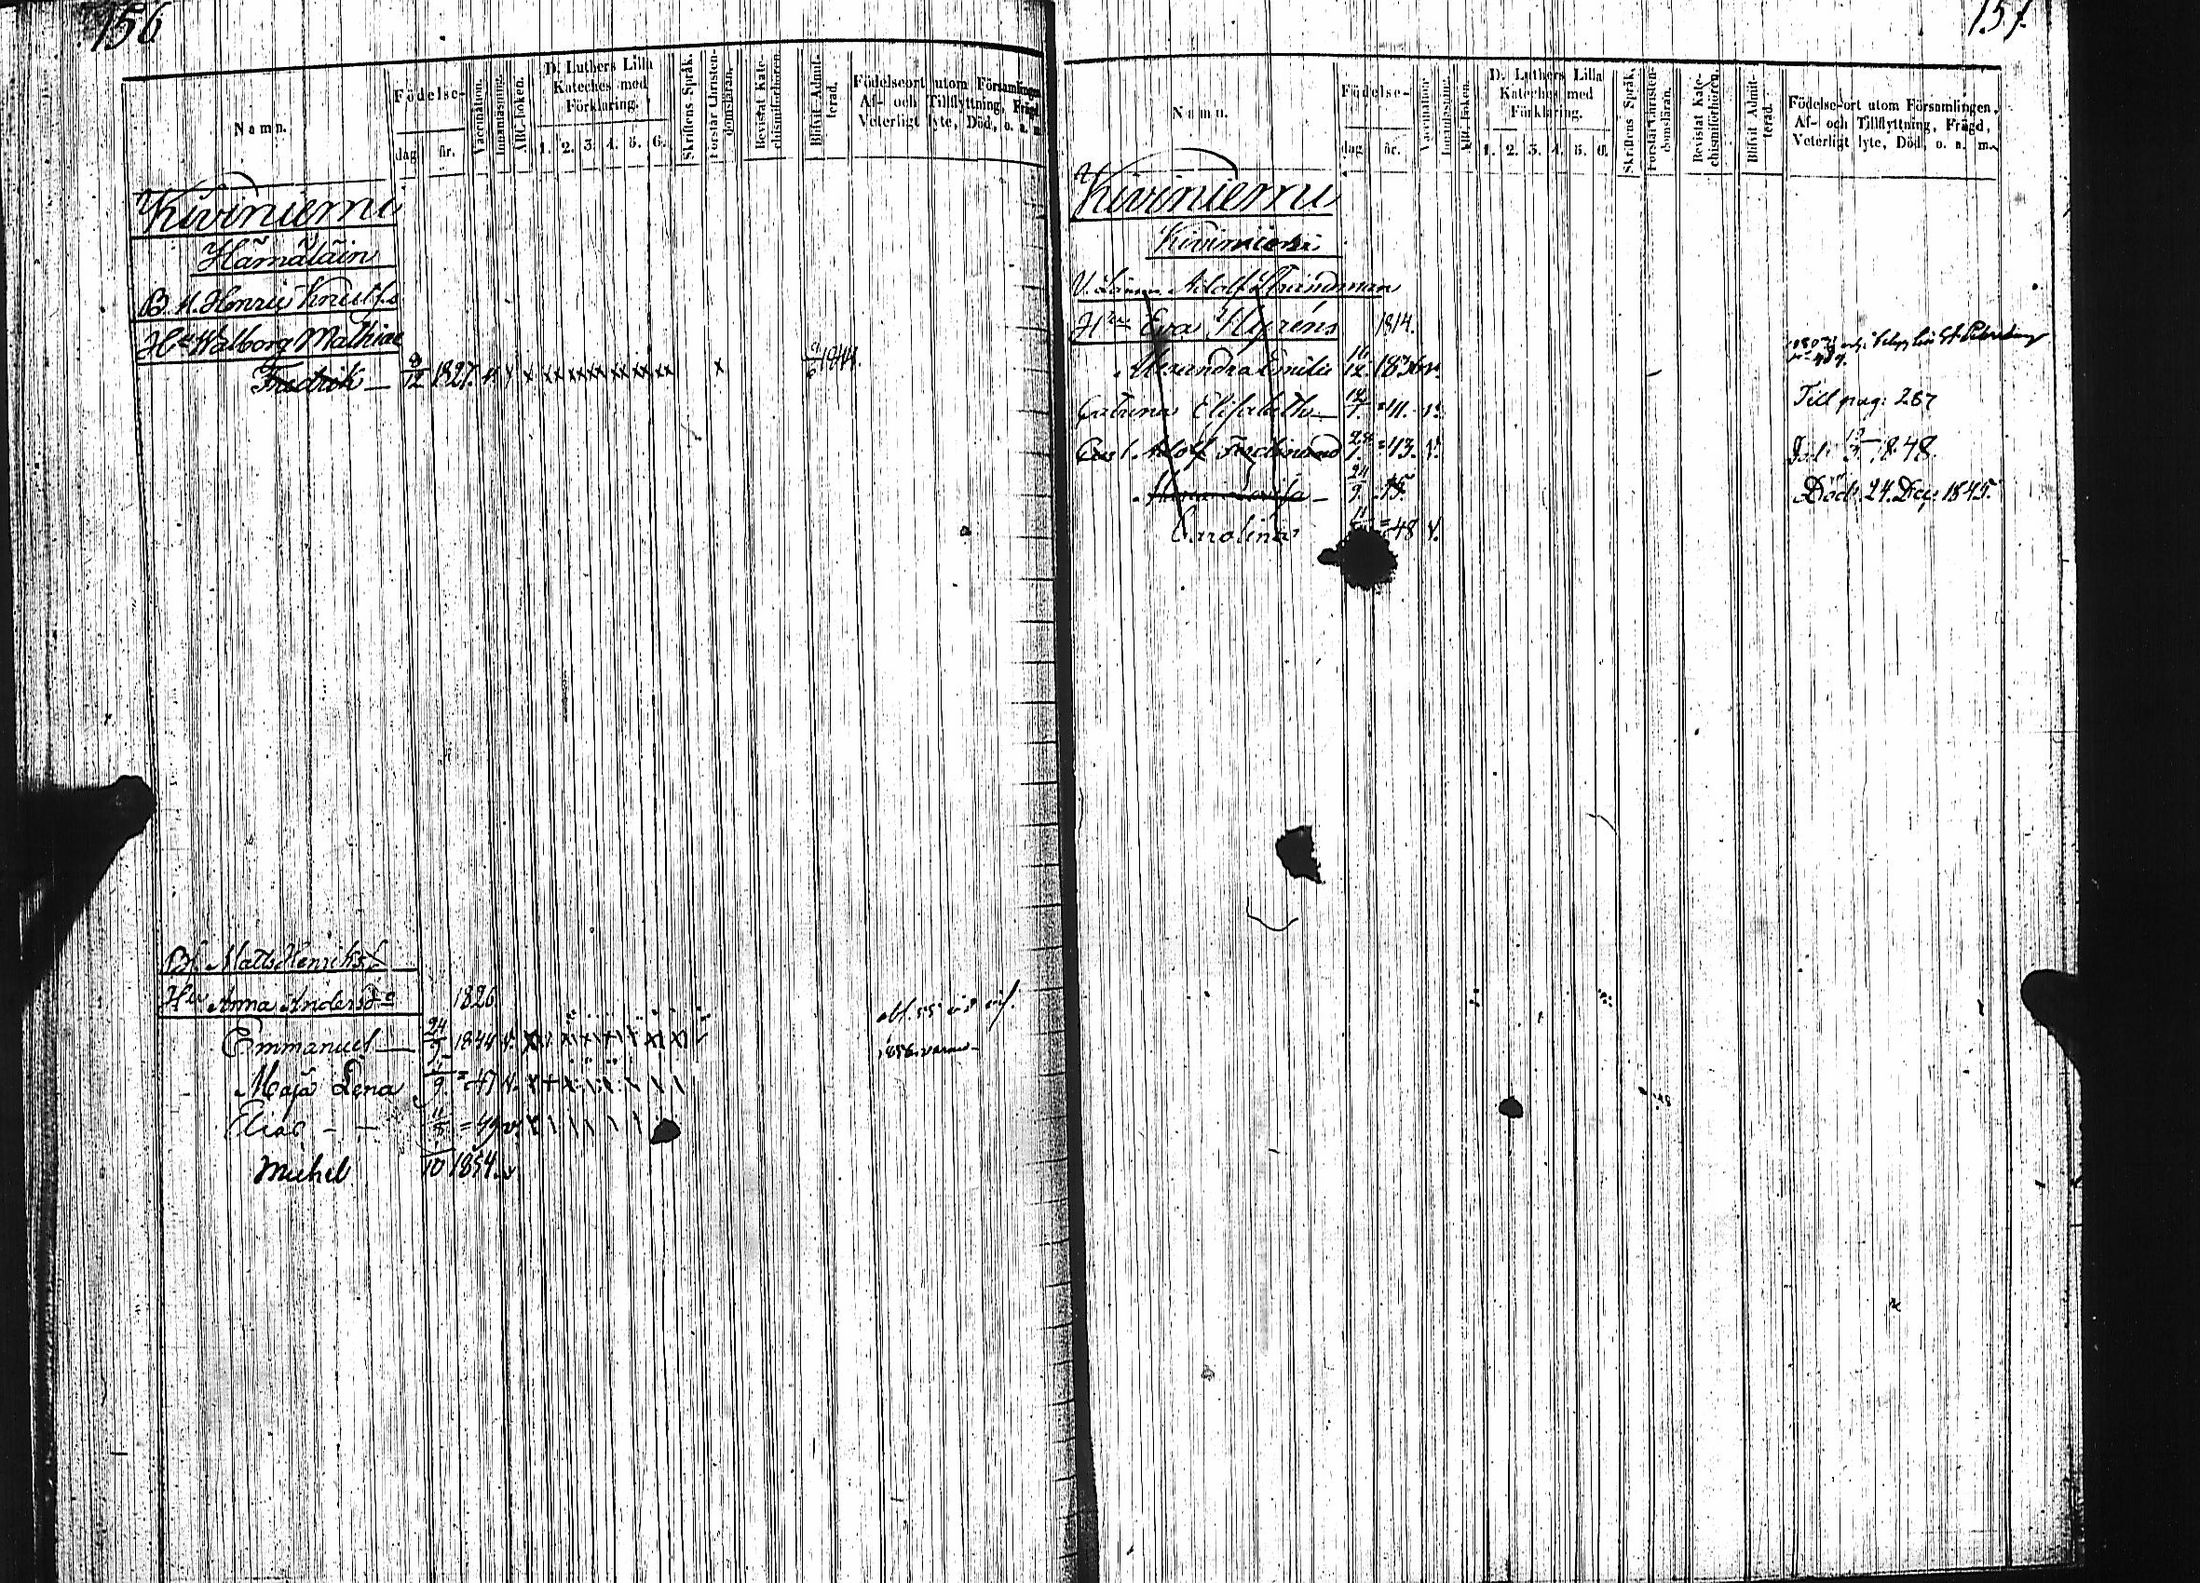 156
Namn.
Födelse-
dag
år.
Vaccination.
Innanläsning.
ABC-boken.
D. Luthers Lilla
Kateches med
Förklaring.
1. 2. 3. 4. 5. 6.
Skriftens Språk.
Förstår Christen-
domsläran.
Bevistat Kate-
chismiförhören.
Blifvit Admit-
terad.
Födelseort utom Församlingen,
Af- och Tillflyttning, Frägd,
Veterligt lyte, Död, o. s. m.
Kiviniemi
Hämäläin
B. M. Henric Knutss
Hu Walborg Mathiae
Fredrik 9/12 1827. v. x x xx xx xx xx xx xx x 1844.
Bf. Matts Henrikss
Hu Anna Andersd:r 1826
Emmanuel 24/9 1844 v.
Maja Lena 9. =47 v.
Elias - - 11/8 =49 v.
Michel 1/10 1854. v
157.
Namn.
Födelse-
dag
år.
Vaccination.
Innanläsning.
ABC-boken.
D. Luthers Lilla
Kateches med
Förklaring.
1. 2. 3. 4. 5. 6.
Skriftens Språk.
Förstår Christen-
domsläran.
Bevistat Kate-
chismiförhören.
Blifvit Admit-
terad.
Födelse-ort utom Församlingen,
Af- och Tillflyttning, Frägd,
Veterligt lyte, Död, o. s. m.
Kiviniemi
Kiviniemi
Adolf Strandman
Hru Eva Nyréns 1814.
Alexandra Emilie 16/12. 1836 v.
Catrina Elisabeth 7 =41. v. Till pag: 267
Carl Adolf Ferdinand =43. v. 1848.
Maria Lovisa 24/9 45. Död 24. Dec: 1845.
Carolina =48 v.